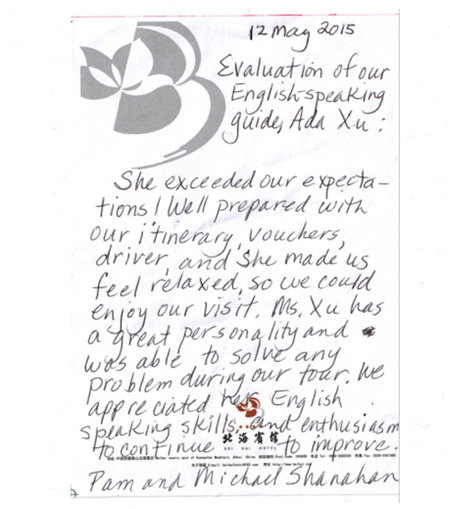 12 May 2015
Evaluation of our
English-speaking
guide, Ada Xu:
She exceeded our expecta-
tions! Well prepared with
our itinerary, vouchers,
driver, and she made us
feel relaxed, so we could
enjoy our visit. Ms. Xu has
a great personality and
was able to solve any
problem during our tour. We
appreciated her English
speaking skills, and enthusiasm
北海賓館
BEI HAI HOTEL
to continue to improve.
Pam and Michael Shanahan